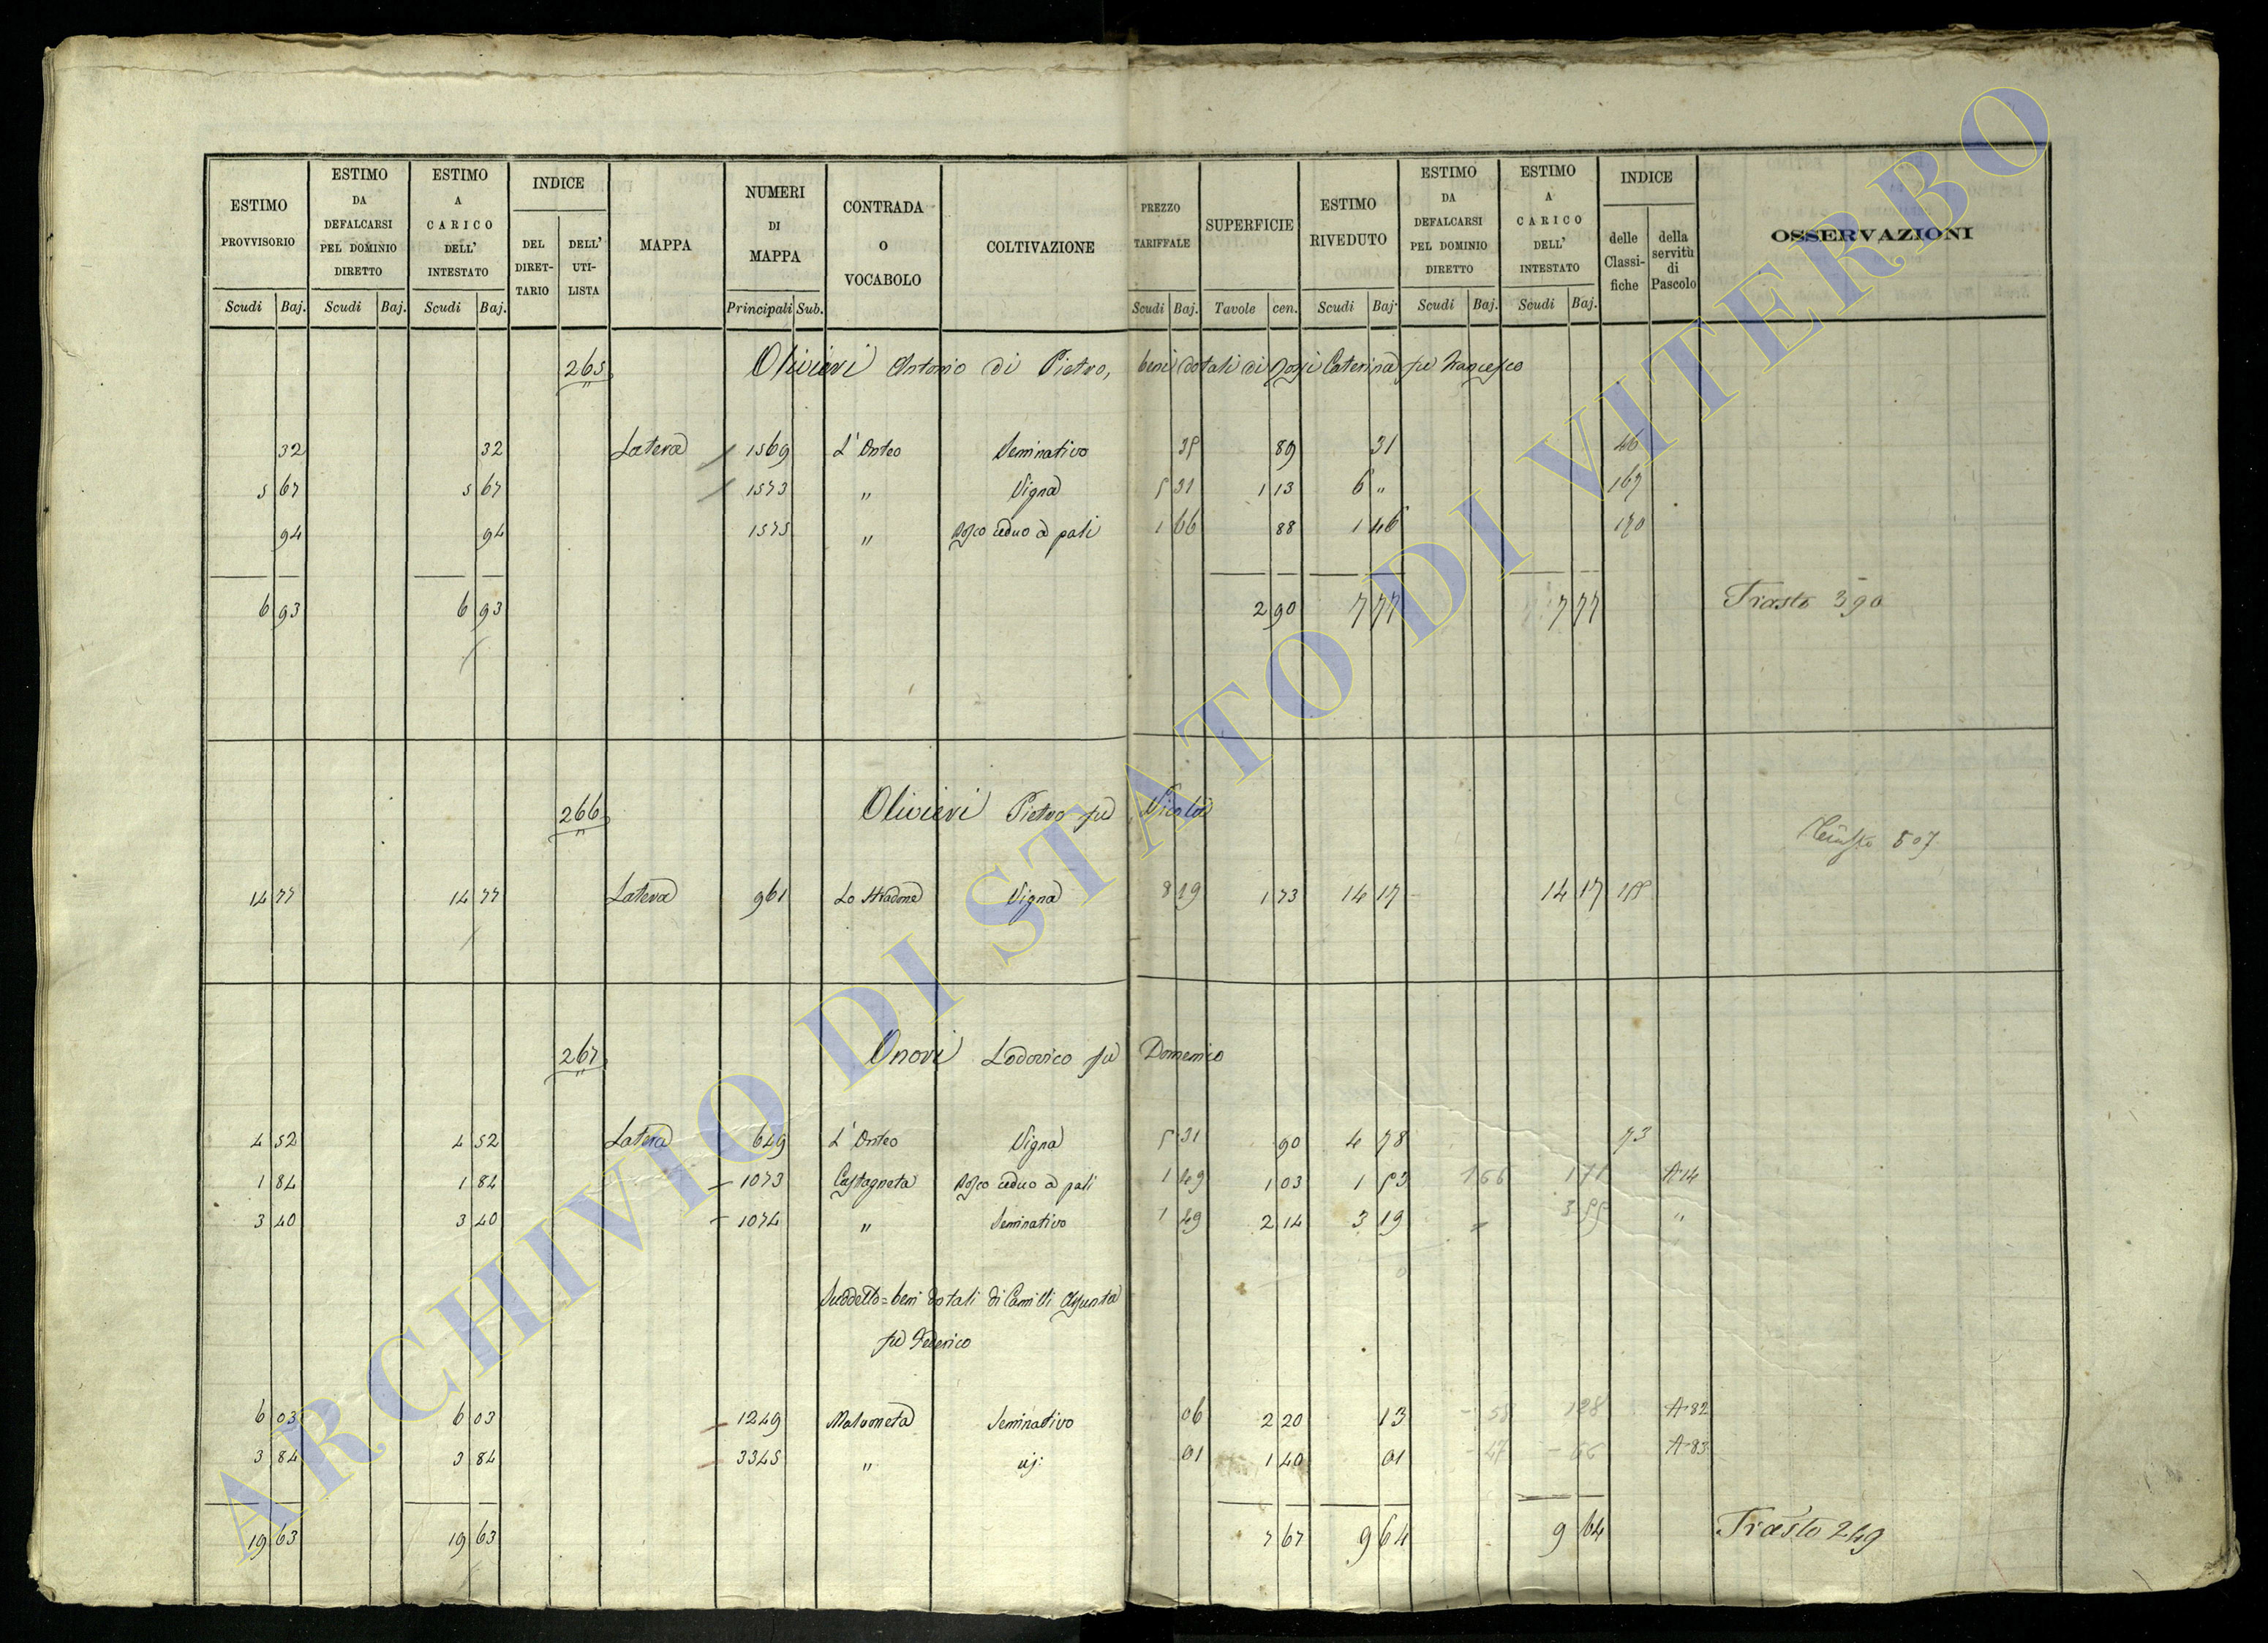 ESTIMO PROVVISORIO | ESTIMO DA DEFALCARSI PEL DOMINIO DIRETTO | ESTIMO A CARICO DELL' INTESTATO | INDICE | MAPPA | NUMERI DI MAPPA | CONTRADA O VOCABOLO | COLTIVAZIONE | PREZZO TARIFFALE | SUPERFICIE | ESTIMO RIVEDUTO | ESTIMO DA DEFALCARSI PEL DOMINIO DIRETTO | ESTIMO A CARICO DELL' INTESTATO | INDICE | OSSERVAZIONI
DEL DIRET-TARIO | DELL' UTI-LISTA | delle Classi-fiche | della servitù di Pascolo
Scudi | Baj. | Scudi | Baj. | Scudi | Baj. | Principali | Sub. | Scudi | Baj. | Tavole | cen. | Scudi | Baj. | Scudi | Baj. | Scudi | Baj.
265 Olivieri Antonio di Pietro, beni dotali di Caterina fu Francesco
32 | 32 | Latera | 1569 | L' Onteo | Seminativo | 35 | 89 | 31 | 46
5 67 | 5 67 | 1573 | " | Vigna | 5 31 | 1 13 | 6 " | 167
94 | 94 | 1575 | " | Bosco ceduo a pali | 1 66 | 88 | 1 46 | 170
6 93 | 6 93 | 2 90 | 7 77 | 7 77 | Trasto 390
266 Olivieri Pietro fu Nicola
507
14 77 | 14 77 | Latera | 961 | Lo Stradone | Vigna | 8 19 | 1 73 | 14 17 | 14 17
267 Onori Lodovico fu Domenico
4 52 | 4 52 | Latera | 649 | L' Onteo | Vigna | 5 31 | 90 | 4 78 | 73
1 84 | 1 84 | 1073 | Castagneta | Bosco ceduo a pali | 1 49 | 1 03 | 1 53 | 1 66 | 1 71 | A 14
3 40 | 3 40 | 1074 | " | Seminativo | 1 49 | 2 14 | 3 19 | 3 55 | "
Suddetto = beni dotali di Camilli Assunta
fu Federico
6 03 | 6 03 | 1249 | Malvoneta | Seminativo | 06 | 2 20 | 13 | 58 | 1 28 | A 82
3 84 | 3 84 | 3345 | " | 01 | 1 40 | 01 | 47 | 66 | A 83
19 63 | 19 63 | 7 67 | 9 64 | 9 64 | Trasto 249
ARCHIVIO DI STATO DI VITERBO